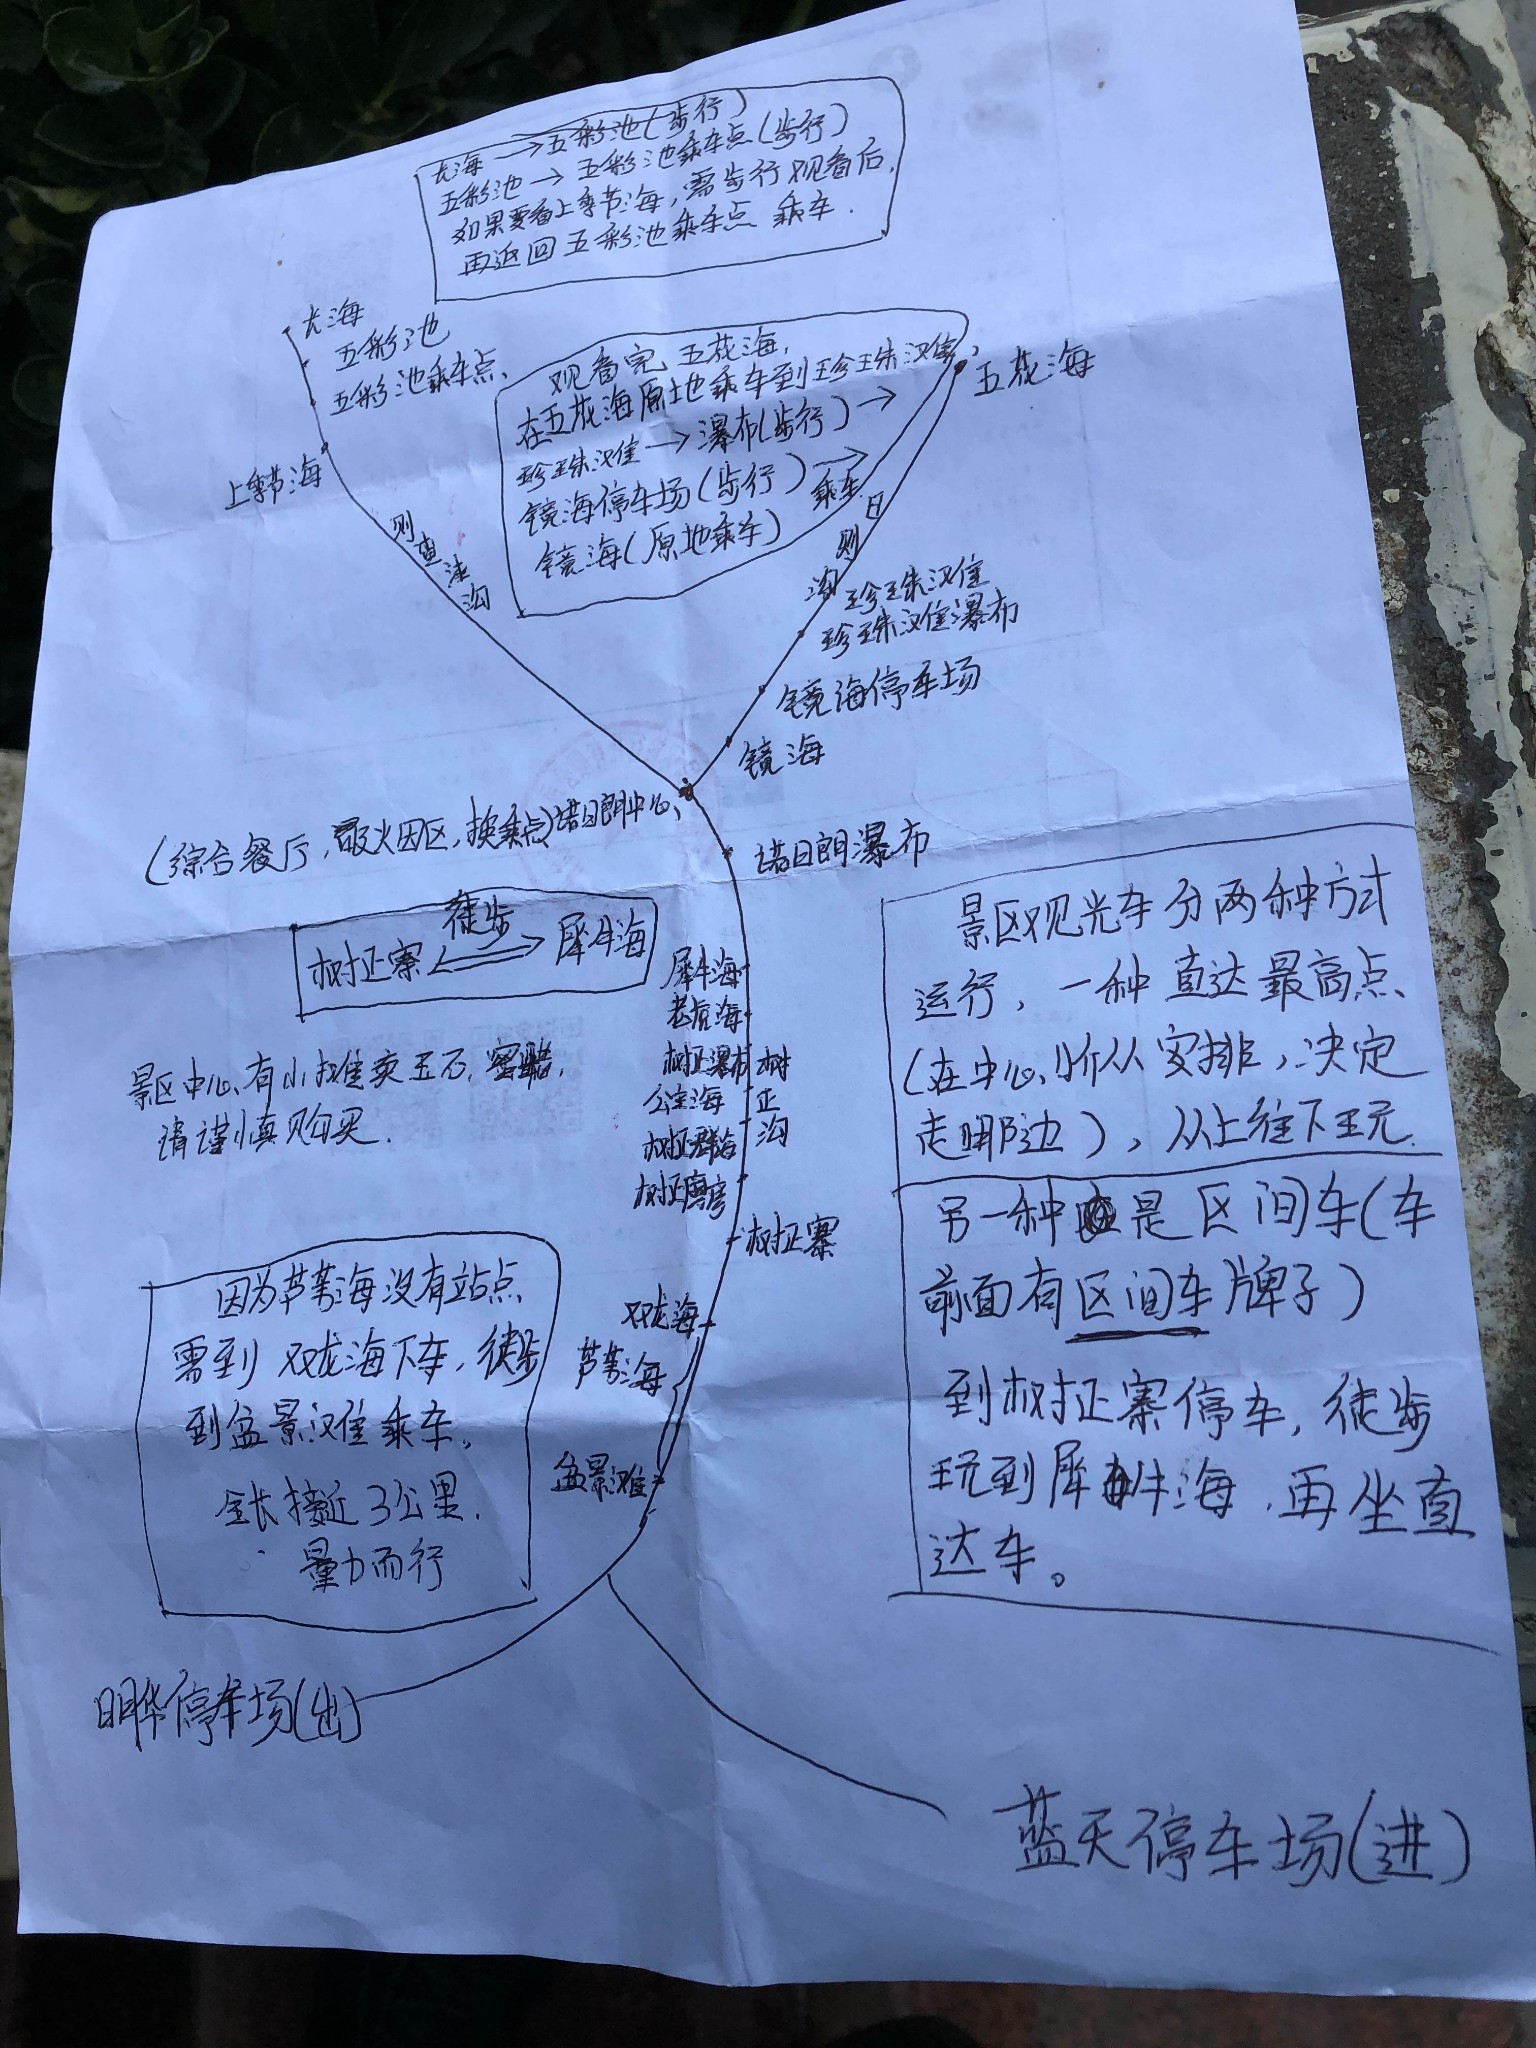 长海→五彩池(步行)
五彩池→五彩池乘车点(步行)
如果要看上季节海,需步行观看后,
再返回五彩池乘车点 乘车.
长海
五彩池
五彩池乘车点
上季节海
则查洼沟
观看完五花海,
在五花海原地乘车到珍珠滩,
珍珠滩→瀑布(步行)→
镜海停车场(步行)→乘车
镜海(原地乘车)
五花海
日则沟
珍珠滩
珍珠滩瀑布
镜海停车场
镜海
(综合餐厅,吸火因区,换乘点)诺日朗中心
诺日朗瀑布
徒步
树正寨⇌犀牛海
景区中心有小摊卖玉石,蜜蜡,
请谨慎购买.
犀牛海
老虎海
树正瀑布
公主海
树正群海
树正磨房
树正沟
树正寨
双龙海
芦苇海
盆景滩
因为芦苇海没有站点
需到双龙海下车,徒步
到盆景滩乘车,
全长接近3公里.
量力而行
景区观光车分两种方式
运行,一种直达最高点
(在中心听从安排,决定
走哪边),从上往下玩.
另一种是区间车(车
前面有区间车牌子)
到树正寨停车,徒步
玩到犀牛海,再坐直
达车。
明华停车场(出)
蓝天停车场(进)